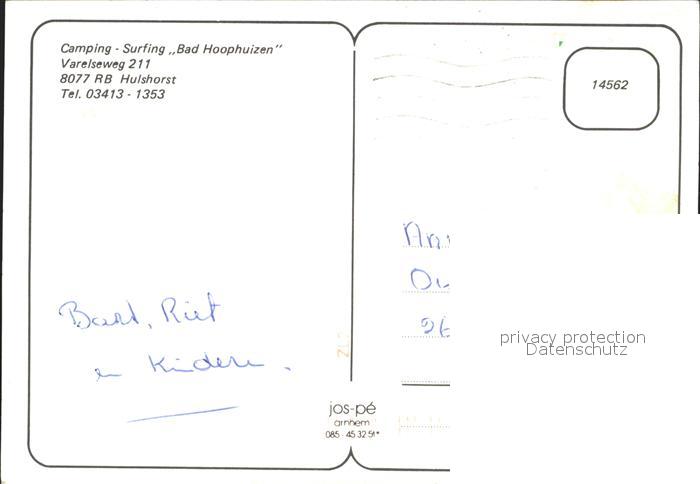 Camping - Surfing „Bad Hoophuizen”
Varelseweg 211
8077 RB Hulshorst
Tel. 03413 - 1353
14562
Bart, Riet
en Kinderen.
jos-pé
arnhem
085 - 45 32 51*
privacy protection
Datenschutz